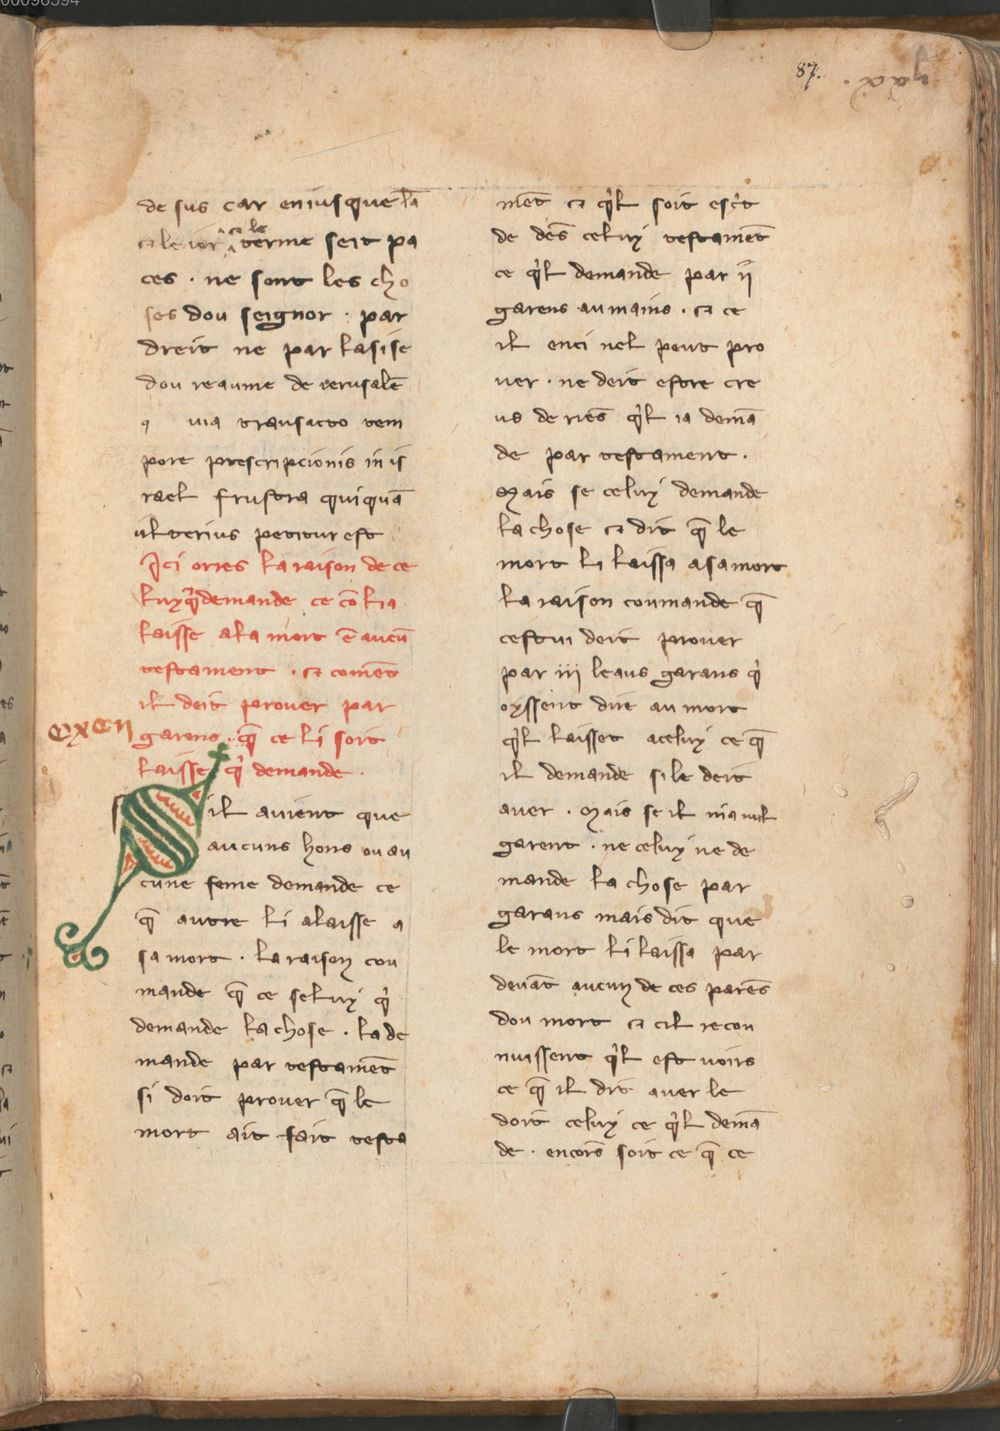 87.
de sus car eniusque lā
⁊ le ior ⁊ le terme seit pa
ces · ne sont les cho
ses dou seignor · par
dreit ne par lasise
dou reaume de ierusalē
uia transacto tem
pore prescripcionis in is
rael frustra quiquā
ulterius petitur est
Ici orres la raison de ce
luy q̓ demande ce cō li a
laisse a la mort ē aucū
testament · ⁊ comēt
il deit prouer par
garens · q̄ ce li soit
laisse q̓ demande ·
cxcii
Sil auient que
aucuns hons ou au
cune feme demande ce
q̄ autre li a laisse a
sa mort · la raison cou
mande q̄ ce seluy q̓
demande la chose · la de
mande par testamēt
si doit prouer q̄ le
mort ait fait testa
mēt ⁊ q̓l soit esc̓t
de dēs celuy testamēt
ce q̓l demande par ii
garens au mains · ⁊ ce
il enci nel peut pro
uer · ne deit estre cre
us de riēs q̓l ia demā
de par testament ·
Mais se celuy demande
la chose ⁊ dit q̄ le
mort li laissa a sa mort
la raison coumande q̄
cestui deit prouer
par iii leaus garans q̓
oyssent dire au mort
q̓l laisset a celuy ce q̄
il demande si le deit
auer · Mais se il nia nul
garent · ne celuy ne de
mande la chose par
garans mais dit que
le mort li laissa par
deuāt aucun de ces parēs
dou mort ⁊ cil recou
nuissent q̓l est uoirs
ce q̄ il dit auer le
doit celuy ce q̓l demā
de · encors soit ce q̄ ce